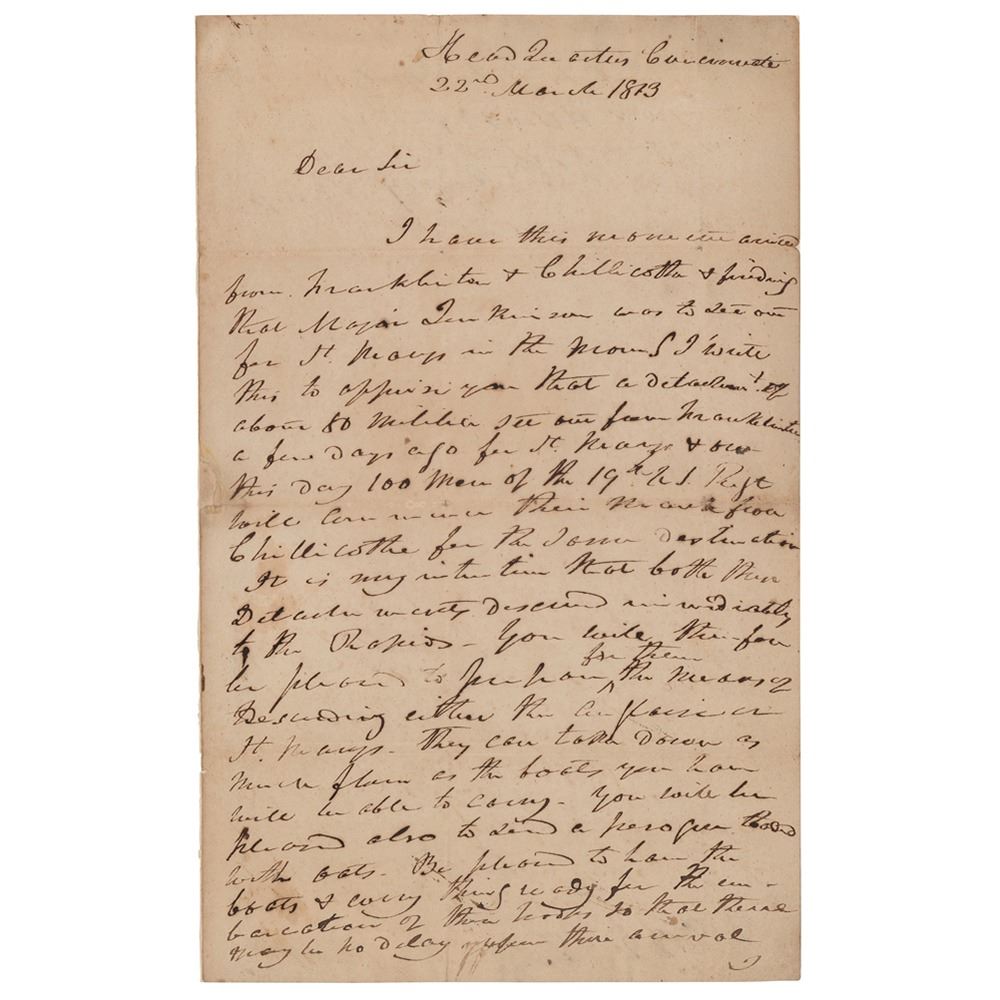 Head Quarters Cincinnati
22nd March 1813
Dear Sir
I have this moment arrived
from Franklinton & Chillicotha & finding
that Major Jenkinson was to set out
for St. Marys in the morng I write
this to apprise you that a detachmt. of
about 80 militia set out from Franklinton
a few days ago for St. Marys & on
this day 100 Men of the 19th U.S. Regt
will commence their march from
Chillicothe for the same destination
It is my intention that both these
Detachments descend immediately
to the Rapids - You will therefore
be pleased to prepare for them the means of
Descending either the auglaize or
St. Marys - they can take down as
much flour as the boats you have
will be able to carry - You will be
pleased also to send a perogue loaded
with oats - Be pleased to have the
boats & every thing ready for the em-
barcation of these troops so that there
may be no delay upon there arrival